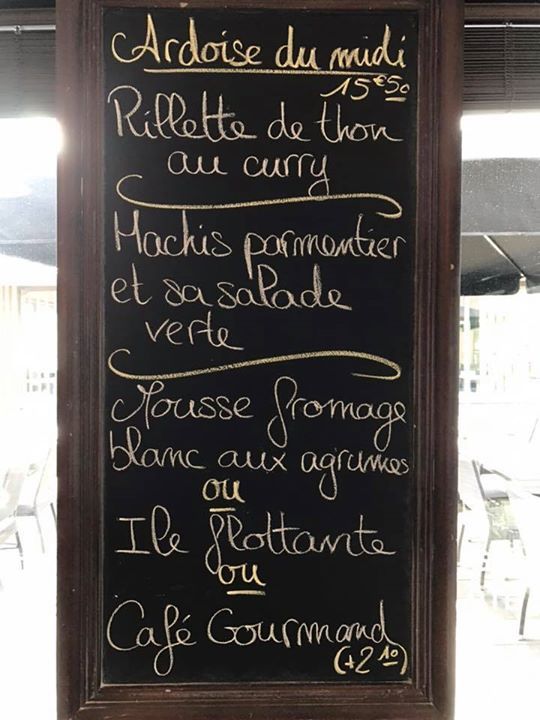 Ardoise du midi
15€50
Rillette de thon
au curry
Hachis parmentier
et sa salade
verte
Mousse fromage
blanc aux agrumes
ou
Ile flottante
ou
Café Gourmand
(+2 10)